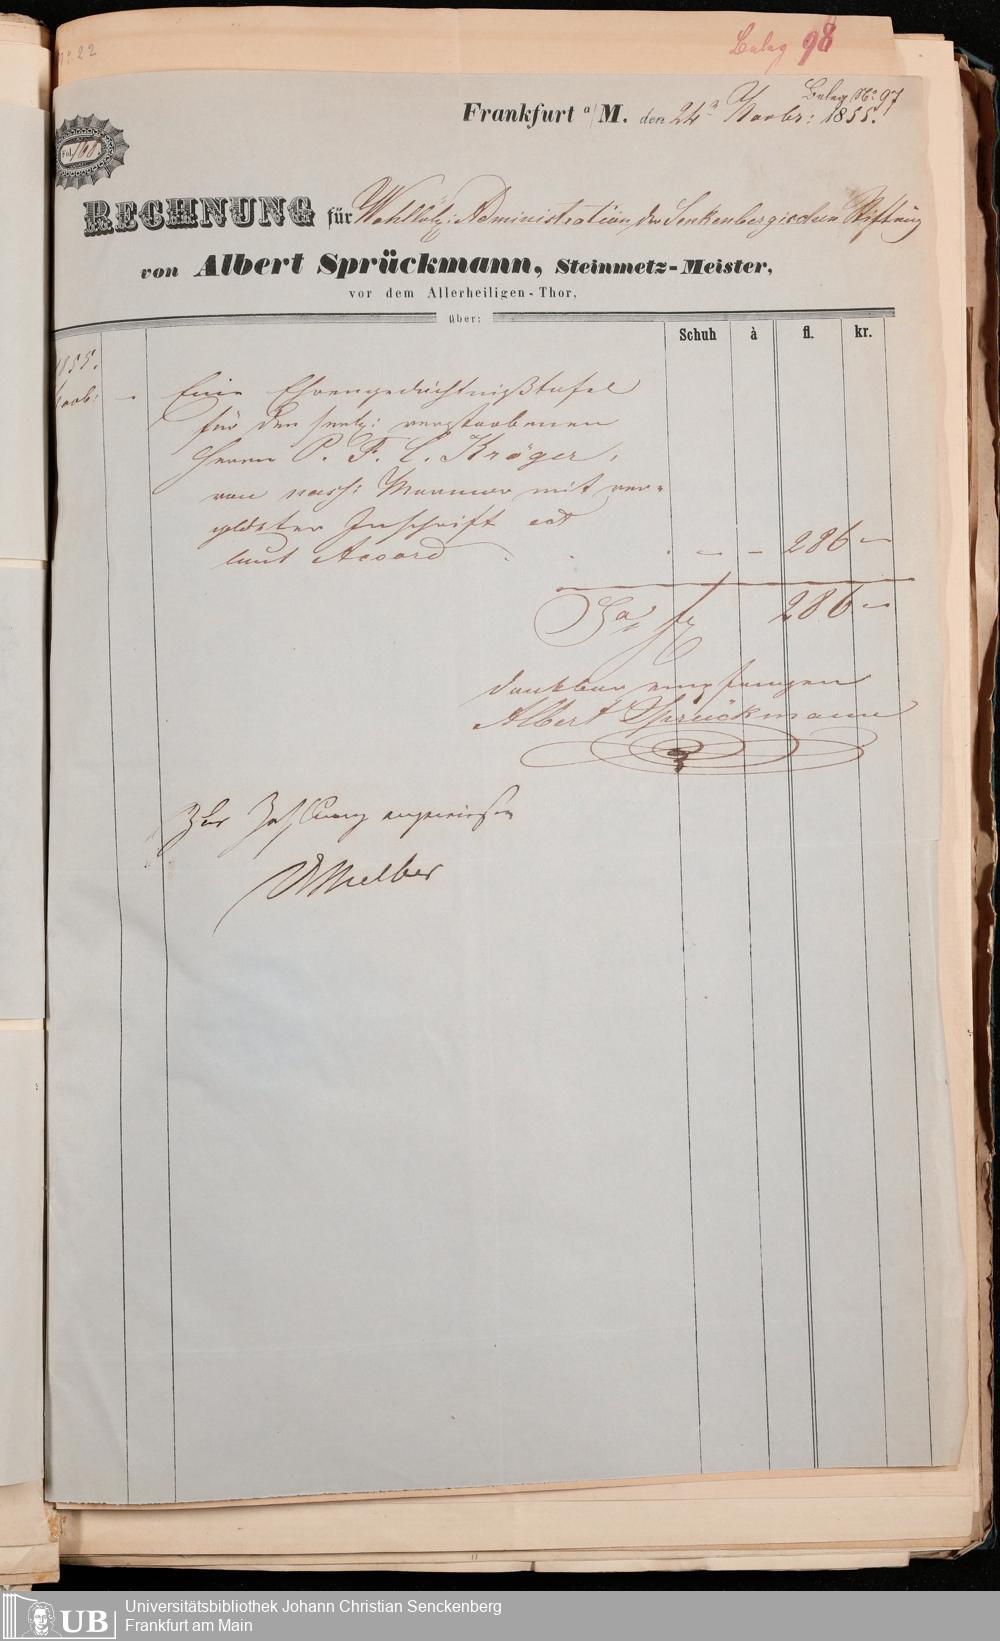 Nº 22
Beleg 98
Beleg Nº 97
Frankfurt a/M. den 24 Novbr: 1855.
Fol. 160.
RECHNUNG für Wohllöbl: Administration der Senkenbergischen Stiftung
von Albert Sprückmann, Steinmetz-Meister,
vor dem Allerheiligen-Thor,
über:
Schuh à fl. kr.
1855.
Novb: Eine Ehrengedächtnißtafel
für den seelg: verstorbenen
Herrn P. F. C. Kröger,
von nass: Marmor mit ver=
goldeter Inschrift
laut Accord . . . – – 286 –
Sa fl 286 –
dankbar empfangen
Albert Sprückmann
Zur Zahlung angewiesen
Melber
UB Universitätsbibliothek Johann Christian Senckenberg
Frankfurt am Main